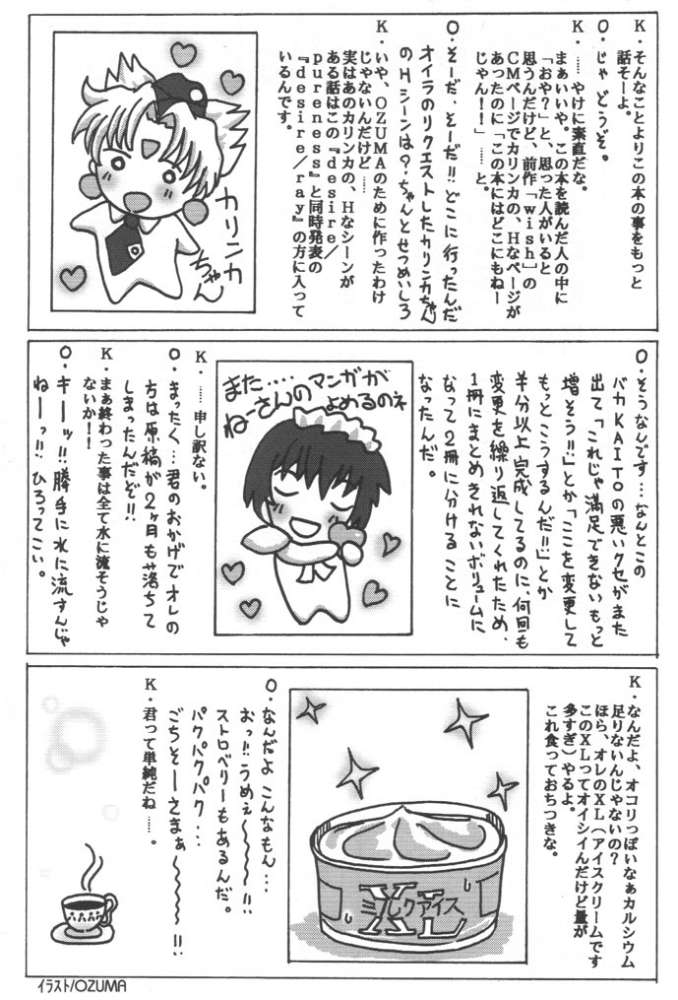 K．そんなことよりこの本の事をもっと
話そーよ。
O．じゃ どうぞ。
K．……やけに素直だな。
まぁいいや。この本を読んだ人の中に
「おや？」と、思った人がいると
思うんだけど、前作「wish」の
CMページでカリンカの、Hなページが
あったのに「この本にはどこにもねー
じゃん！！」……と。
O．そーだ、そーだ!!どこに行ったんだ
オイラのリクエストしたカリンカちゃん
のHシーンは？ちゃんとせつめいしろ
K．いや、OZUMAのために作ったわけ
じゃないんだけど……
実はあのカリンカの、Hなシーンが
ある話はこの『desire／
pureness』と同時発表の
『desire／ray』の方に入って
いるんです。
カリンカ
ちゃん
O．そうなんです…なんとこの
バカKAITOの悪いクセがまた
出て「これじゃ満足できないもっと
増そう!!」とか「ここを変更して
もっとこうするんだ!!」とか
半分以上完成してるのに、何回も
変更を繰り返してくれたため、
1冊にまとめきれないボリュームに
なって2冊に分けることに
なったんだ。
また……マンガが
ねーさんの よめるのネ
K．……申し訳ない。
O．まったく…君のおかげでオレの
方は原稿が2ヶ月も落ちて
しまったんだぞ!!
K．まぁ終わった事は全て水に流そうじゃ
ないか！！
O．キーッ!!勝手に水に流すんじゃ
ねーっ!!ひろってこい。
K．なんだよ、オコリっぽいなぁカルシウム
足りないんじゃないの？
ほら、オレのXL（アイスクリームです
このXLってオイシイんだけど量が
多すぎ）やるよ。
これ食っておちつきな。
XL
ミルクアイス
O．なんだよ こんなもん…
おっ!!うめぇ～～～!!
ストロベリーもあるんだ。
パクパクパク…
ごちそーさまぁ～～～～!!
K．君って単純だね……。
イラスト/OZUMA